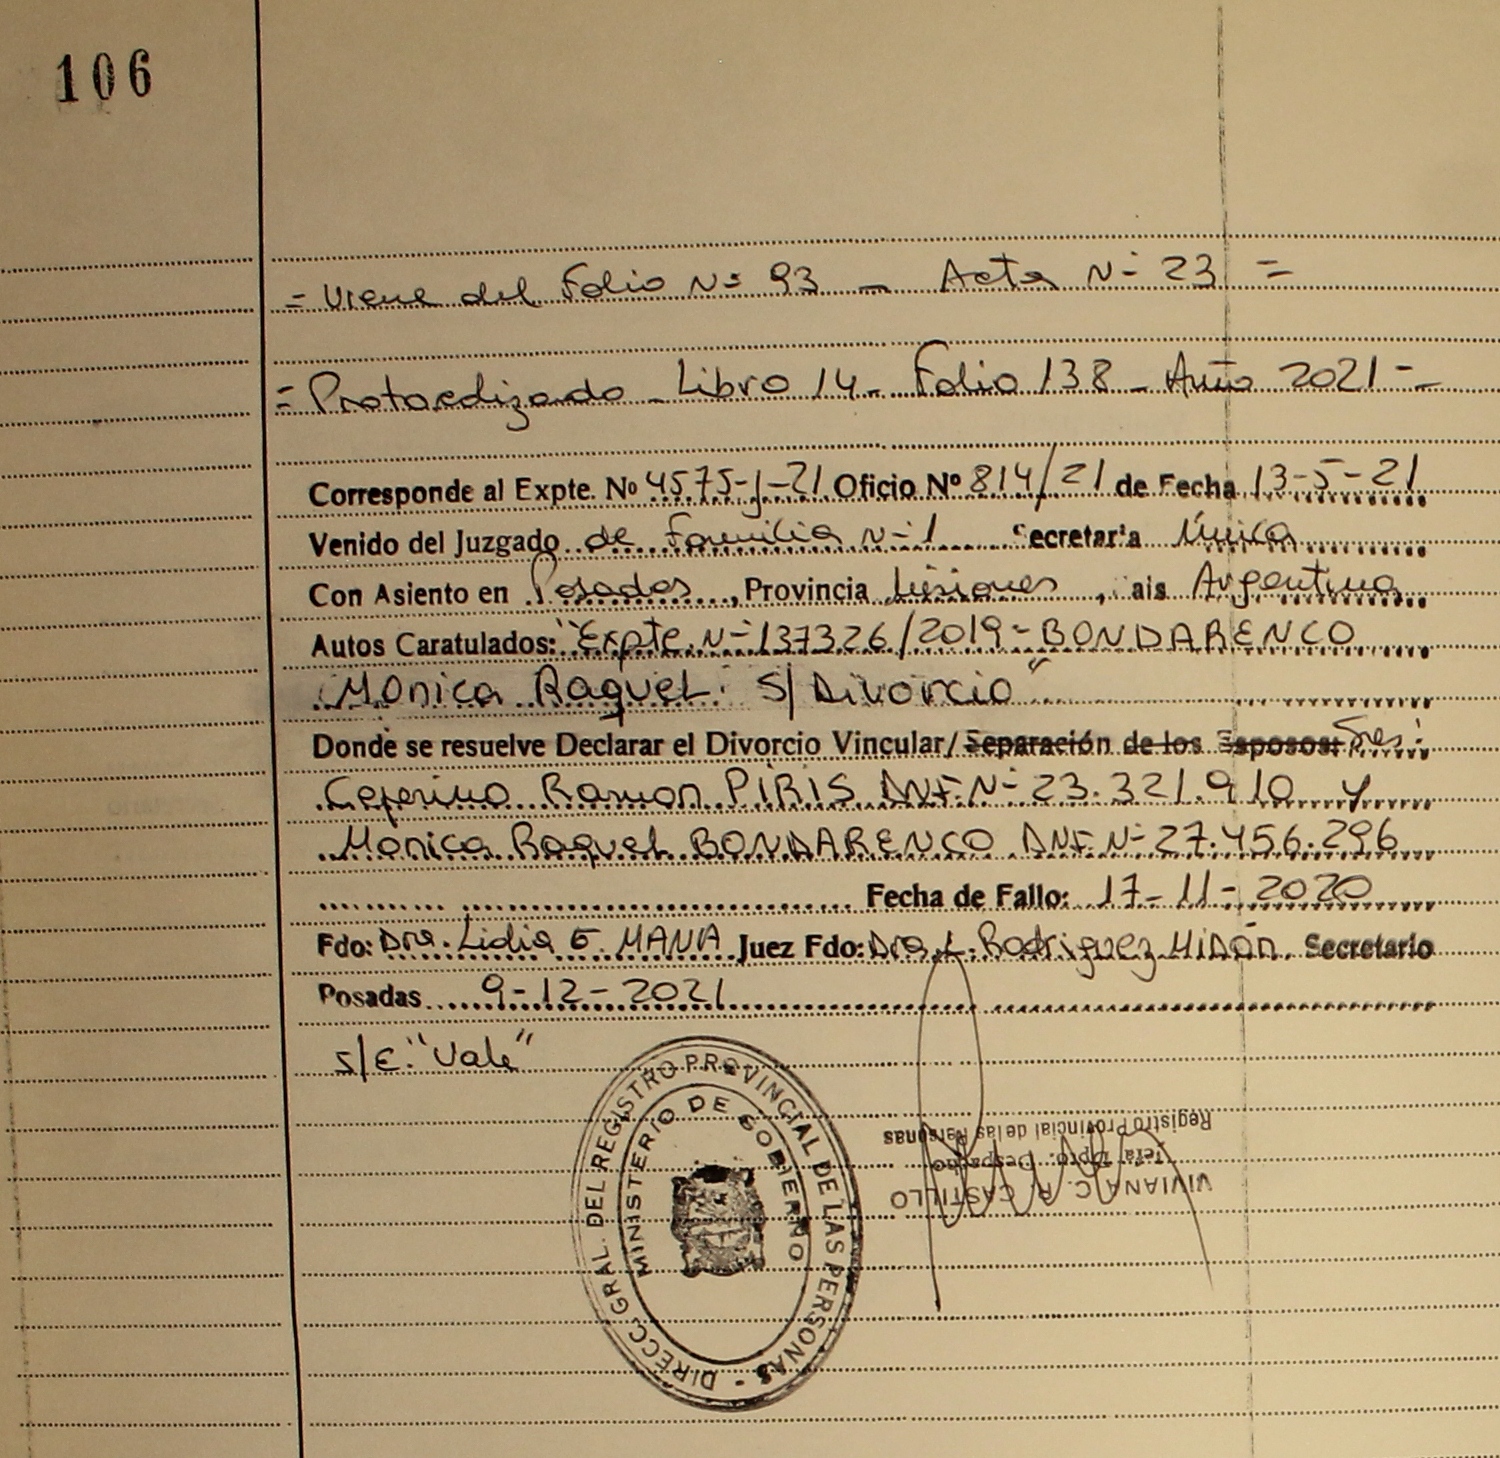 106
= Viene del Folio Nº 93 - Acta Nº 23 =
= Protocolizado - Libro 14 - Folio 138 - Año 2021 -
Corresponde al Expte. Nº 4575-J-21 Oficio Nº 814/21 de Fecha 13-5-21
Venido del Juzgado de Familia Nº 1 Secretaria Única
Con Asiento en Posadas, Provincia Misiones, Pais Argentina
Autos Caratulados: "Expte. Nº 137326/2019 - BONDARENCO
Monica Raquel. S/ Divorcio"
Donde se resuelve Declarar el Divorcio Vincular/ Separación de los Esposos: Sres:
Ceferino Ramon PIRIS DNI. Nº 23.321.910 y
Monica Raquel BONDARENCO DNI. Nº 27.456.296
Fecha de Fallo: 17-11-2020
Fdo: Dra. Lidia E. MANA Juez Fdo: Dra. L. Rodriguez MIDÓN. Secretario
Posadas 9-12-2021
S/E: "Vale"
DIRECC. GRAL. DEL REGISTRO PROVINCIAL DE LAS PERSONAS -
MINISTERIO DE GOBIERNO
VIVIANA C. R. CASTILLO
Jefa Dpto. Despacho
Registro Provincial de las Personas